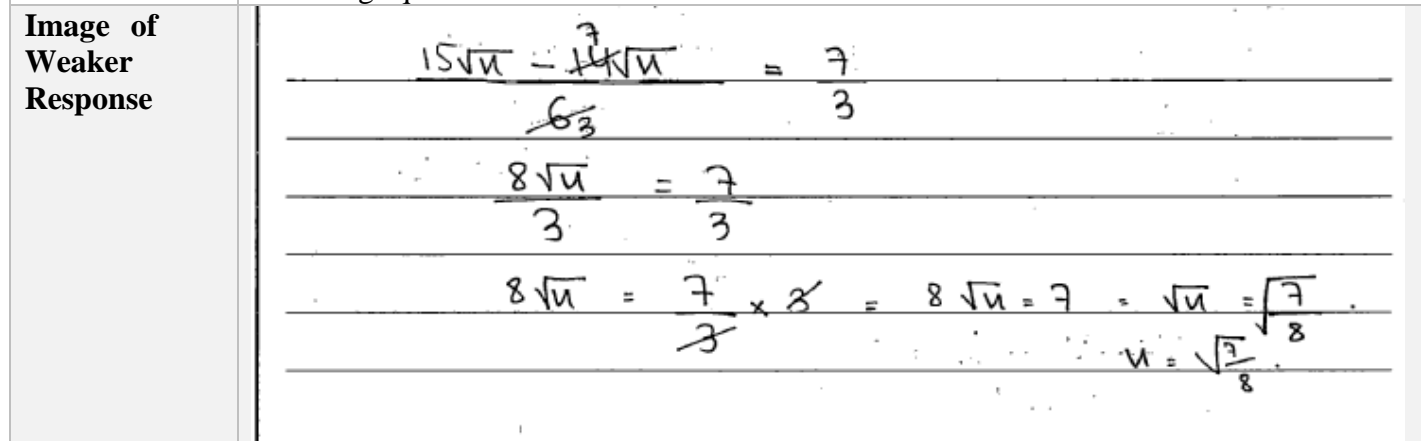 Image of
Weaker
Response
15√u - 14√u 7 / 6 3 = 7/3
8√u/3 = 7/3
8√u = 7/3 × 3 = 8√u = 7 = √u = √7/8 .
u = √7/8 .